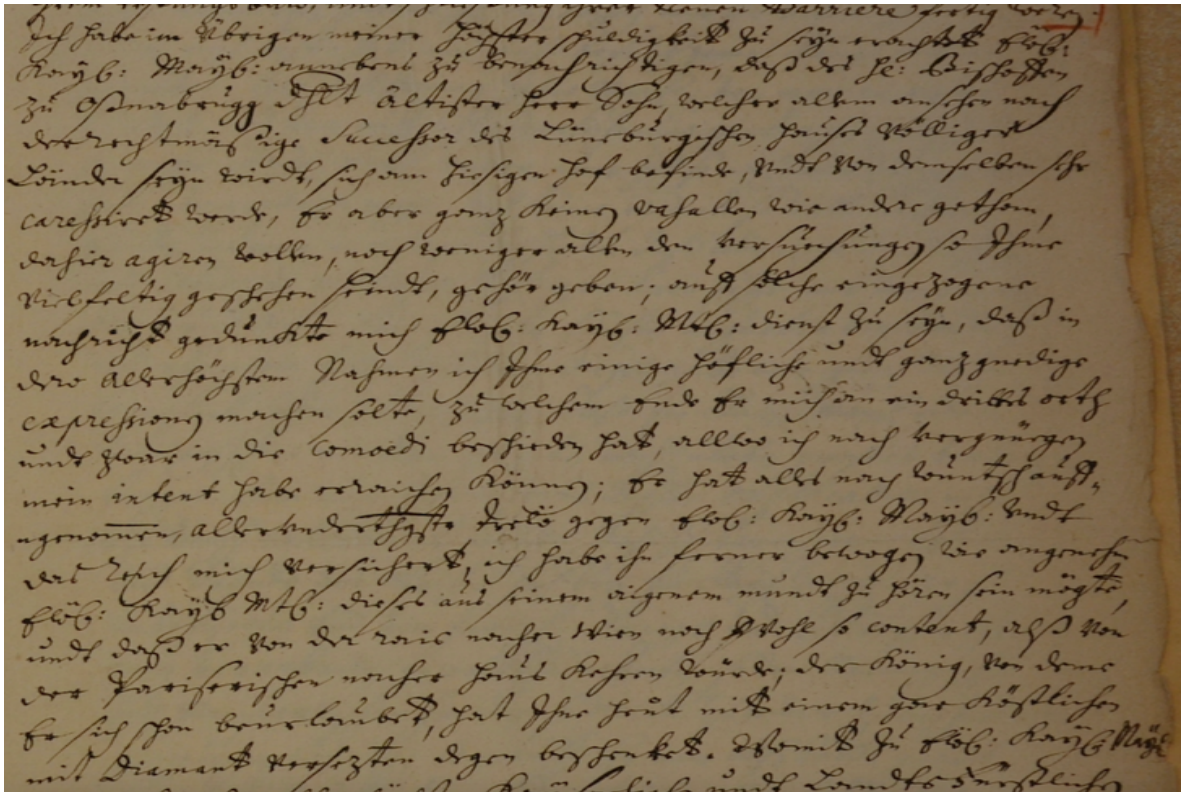 ihrer kleinen Barriere fertig werden.
Ich habe im Übrigen meiner höchster schuldigkeit zu seyn erachtet Ewb:
Kayß: Mayß: annebens zu benachrichtigen, daß des H: Bischoffen
zu Oßnabrügg dhlt Ältister Herr Sohn, welcher allem ansehen nach
der rechtmäßige Successor des Lüneburgischen Hauses völliger
Länder seyn wirdt, sich am hiesigen hof befinde, undt von demselben sehr
caressiret werde, Er aber ganz keinen vasallen wie andere gethan,
dahier agiren wollen, noch weniger allen den versuchungen so Ihme
vielfeltig geschehen seindt, gehör geben; auff solche eingezogene
nachricht gedunkte mich Ewß: Kayß: Mtß: dienst zu seyn, daß in
dero allerhöchstem Nahmen ich Ihme einige höfliche undt ganz gnedige
expressiones machen solte, zu welchem Ende Er mich an ein drittes orth
undt zwar in die Comoedi beschieden hat, allwo ich nach vergnüegen
mein intent habe erraichen können; Er hat alles nach wuntsch auff-
genommen, allerunderthgste treü gegen Ewß: Kayß: Mayß: undt
das Reich mich versichert, ich habe ihn ferner bewogen wie angenehm
Ewß: Kayß Mtß: dieses aus seinem aigenem mundt zu hören sein mögte,
undt daß er von der rais nacher Wien noch so content, alß von
der Pariserischen nacher haus kehren würde; der König, von deme
Er sich schon beurlaubet, hat Ihne heut mit einem gar köstlichen
mit Diamant versezten degen beschenket. Womit zu Ewß: Kayß: Mayß:
undt Landtsfürstlichen